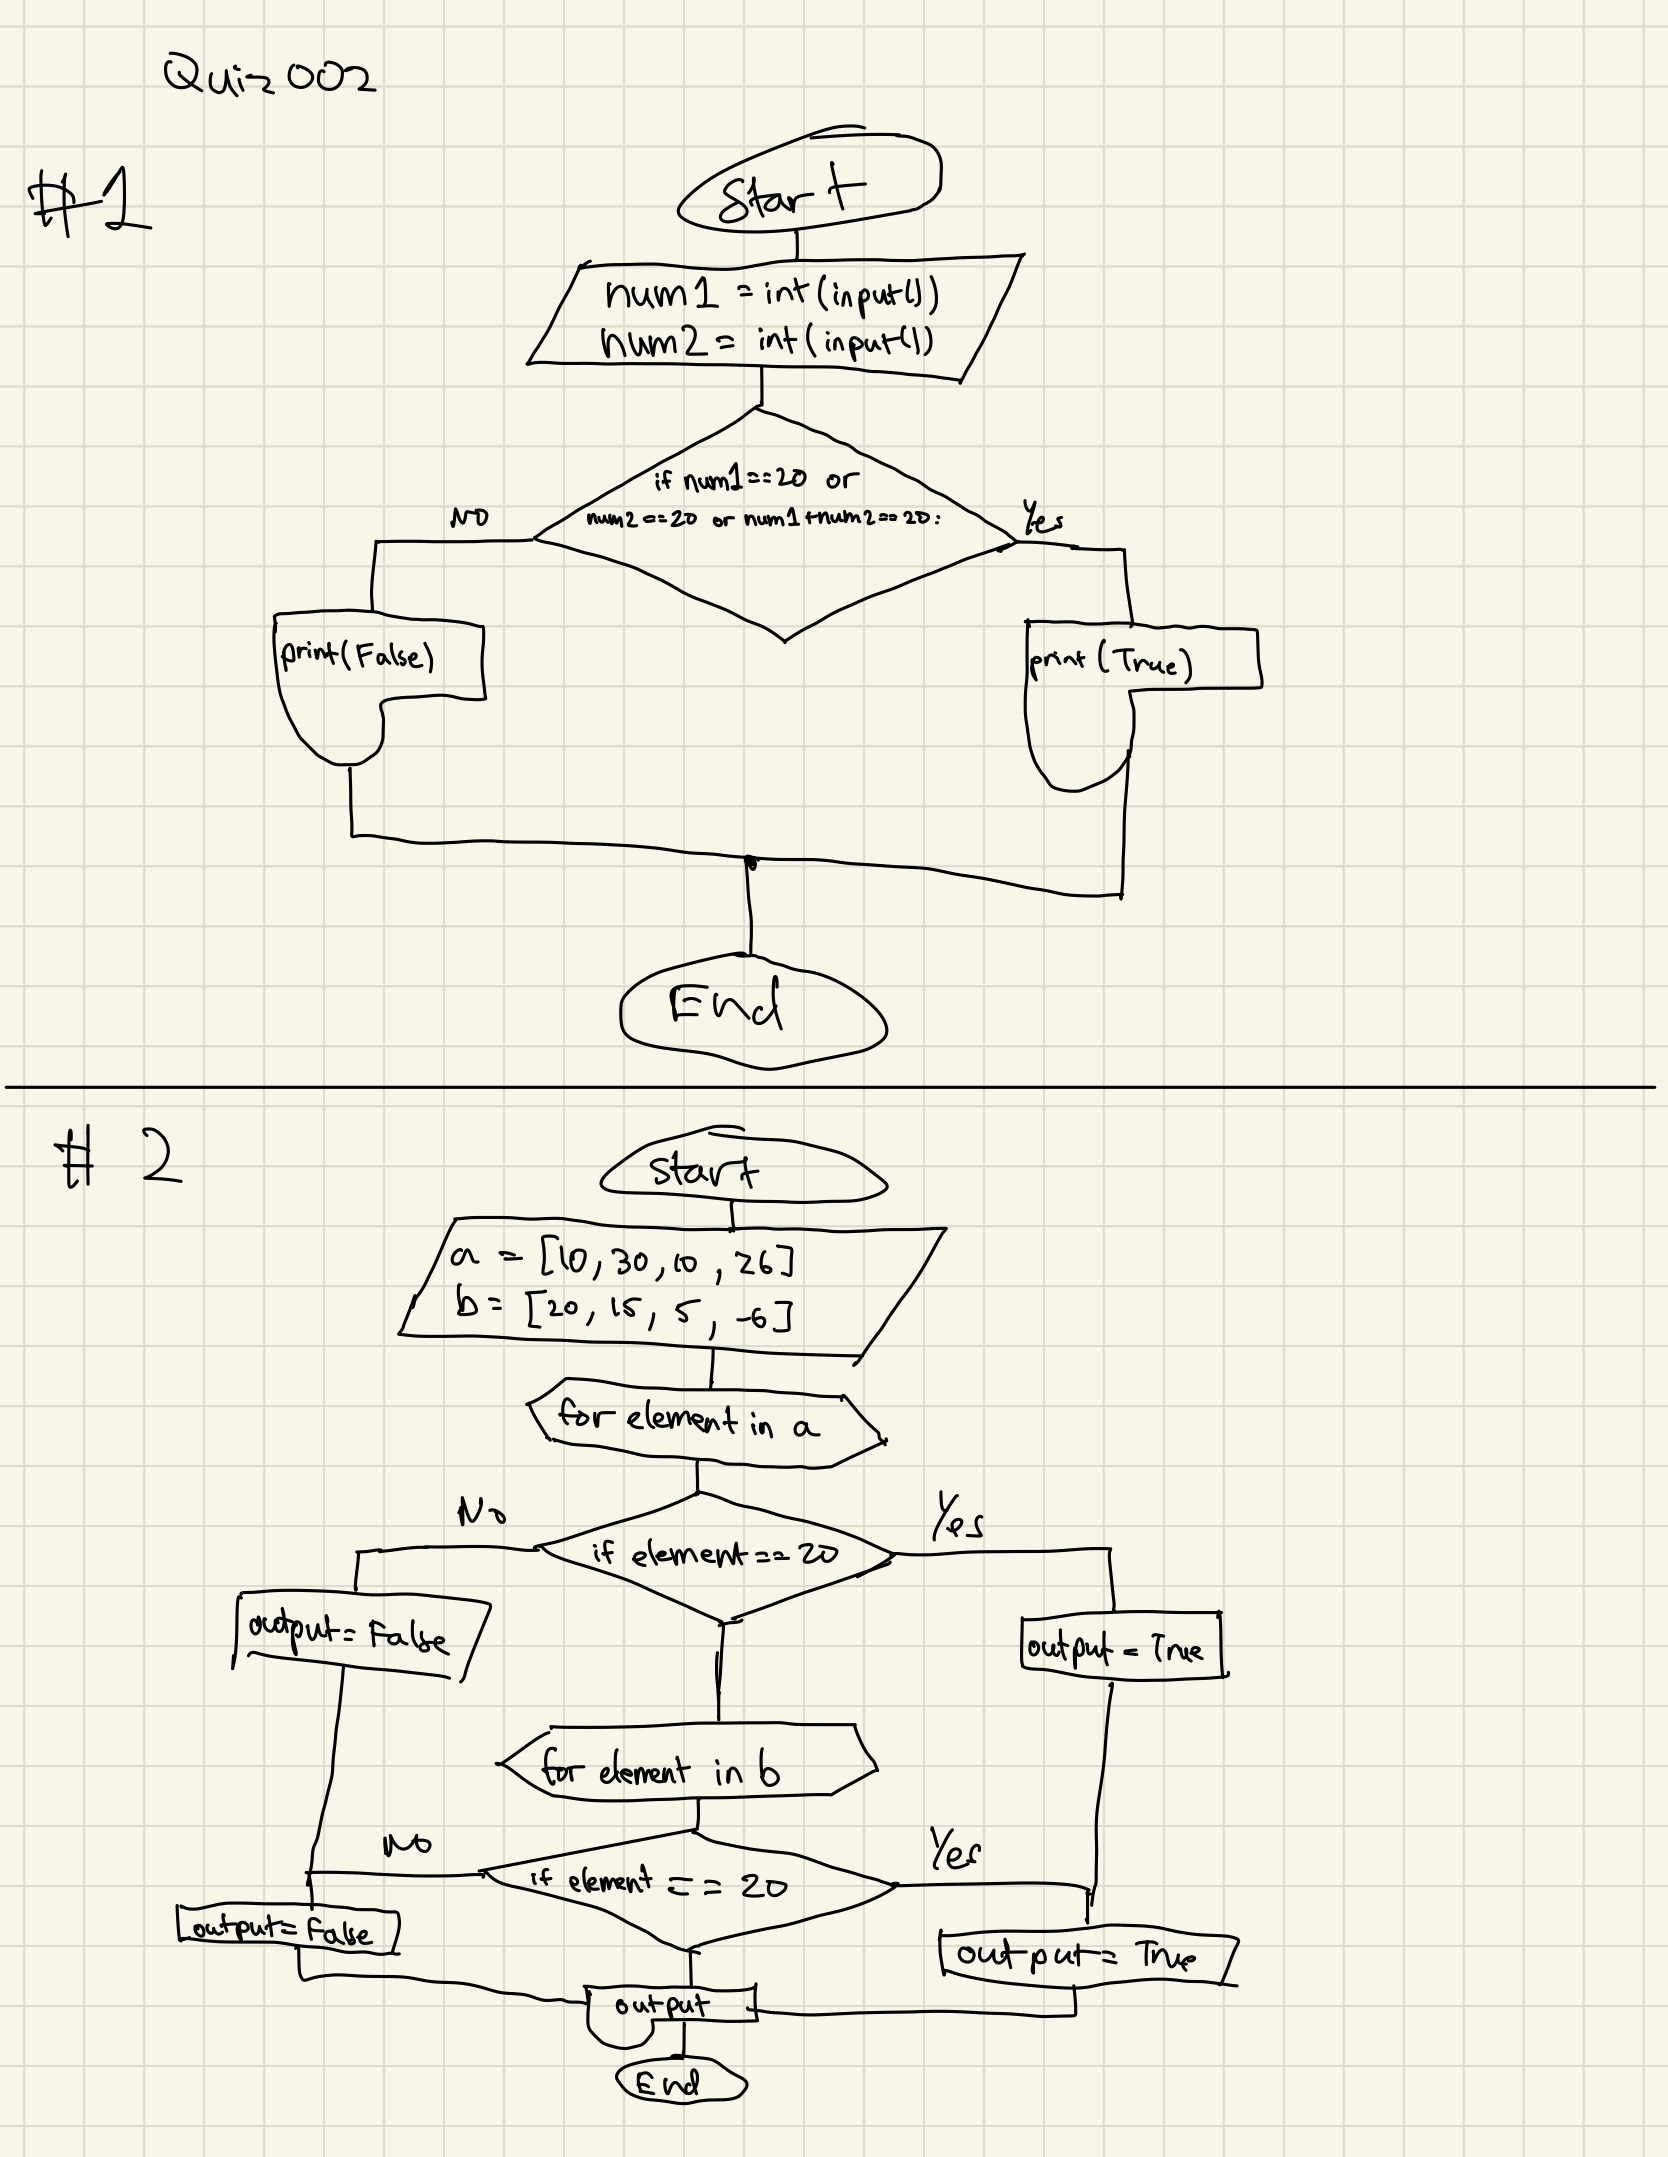 Quiz 002
#1
Start
num1 = int(input())
num2 = int(input())
if num1==20 or
num2==20 or num1+num2==20:
NO
Yes
print(False)
print(True)
End
# 2
Start
a = [10, 30, 10, 26]
b = [20, 15, 5, -6]
for element in a
No
Yes
if element == 20
output = False
output = True
for element in b
No
Yes
if element == 20
output = False
output = True
output
End